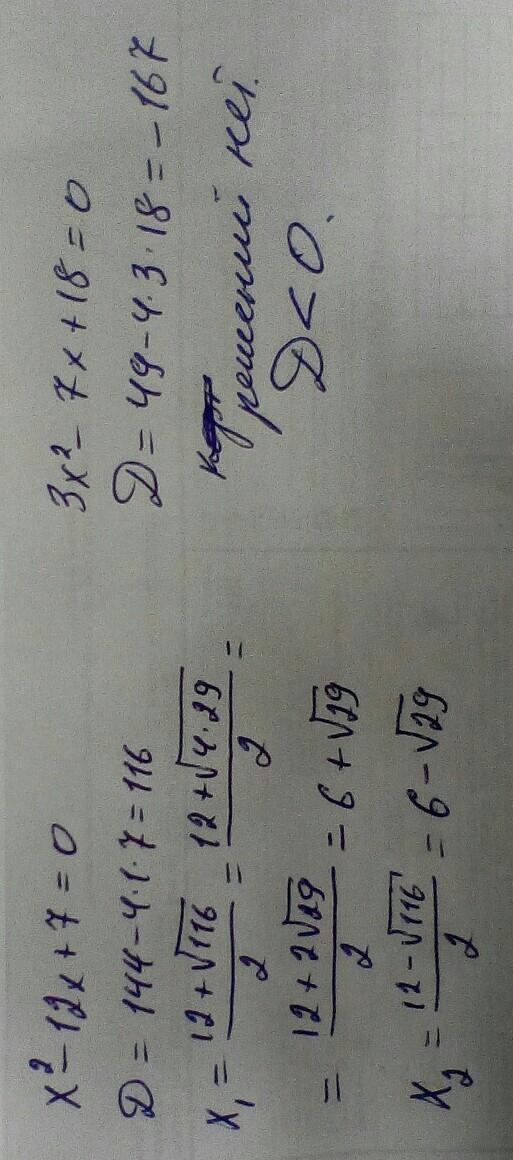 x² - 12x + 7 = 0
D = 144 - 4·1·7 = 116
x₁ = (12 + √116)/2 = (12 + √(4·29))/2 =
= (12 + 2√29)/2 = 6 + √29
x₂ = (12 - √116)/2 = 6 - √29
3x² - 7x + 18 = 0
D = 49 - 4·3·18 = -167
решений нет.
D < 0.